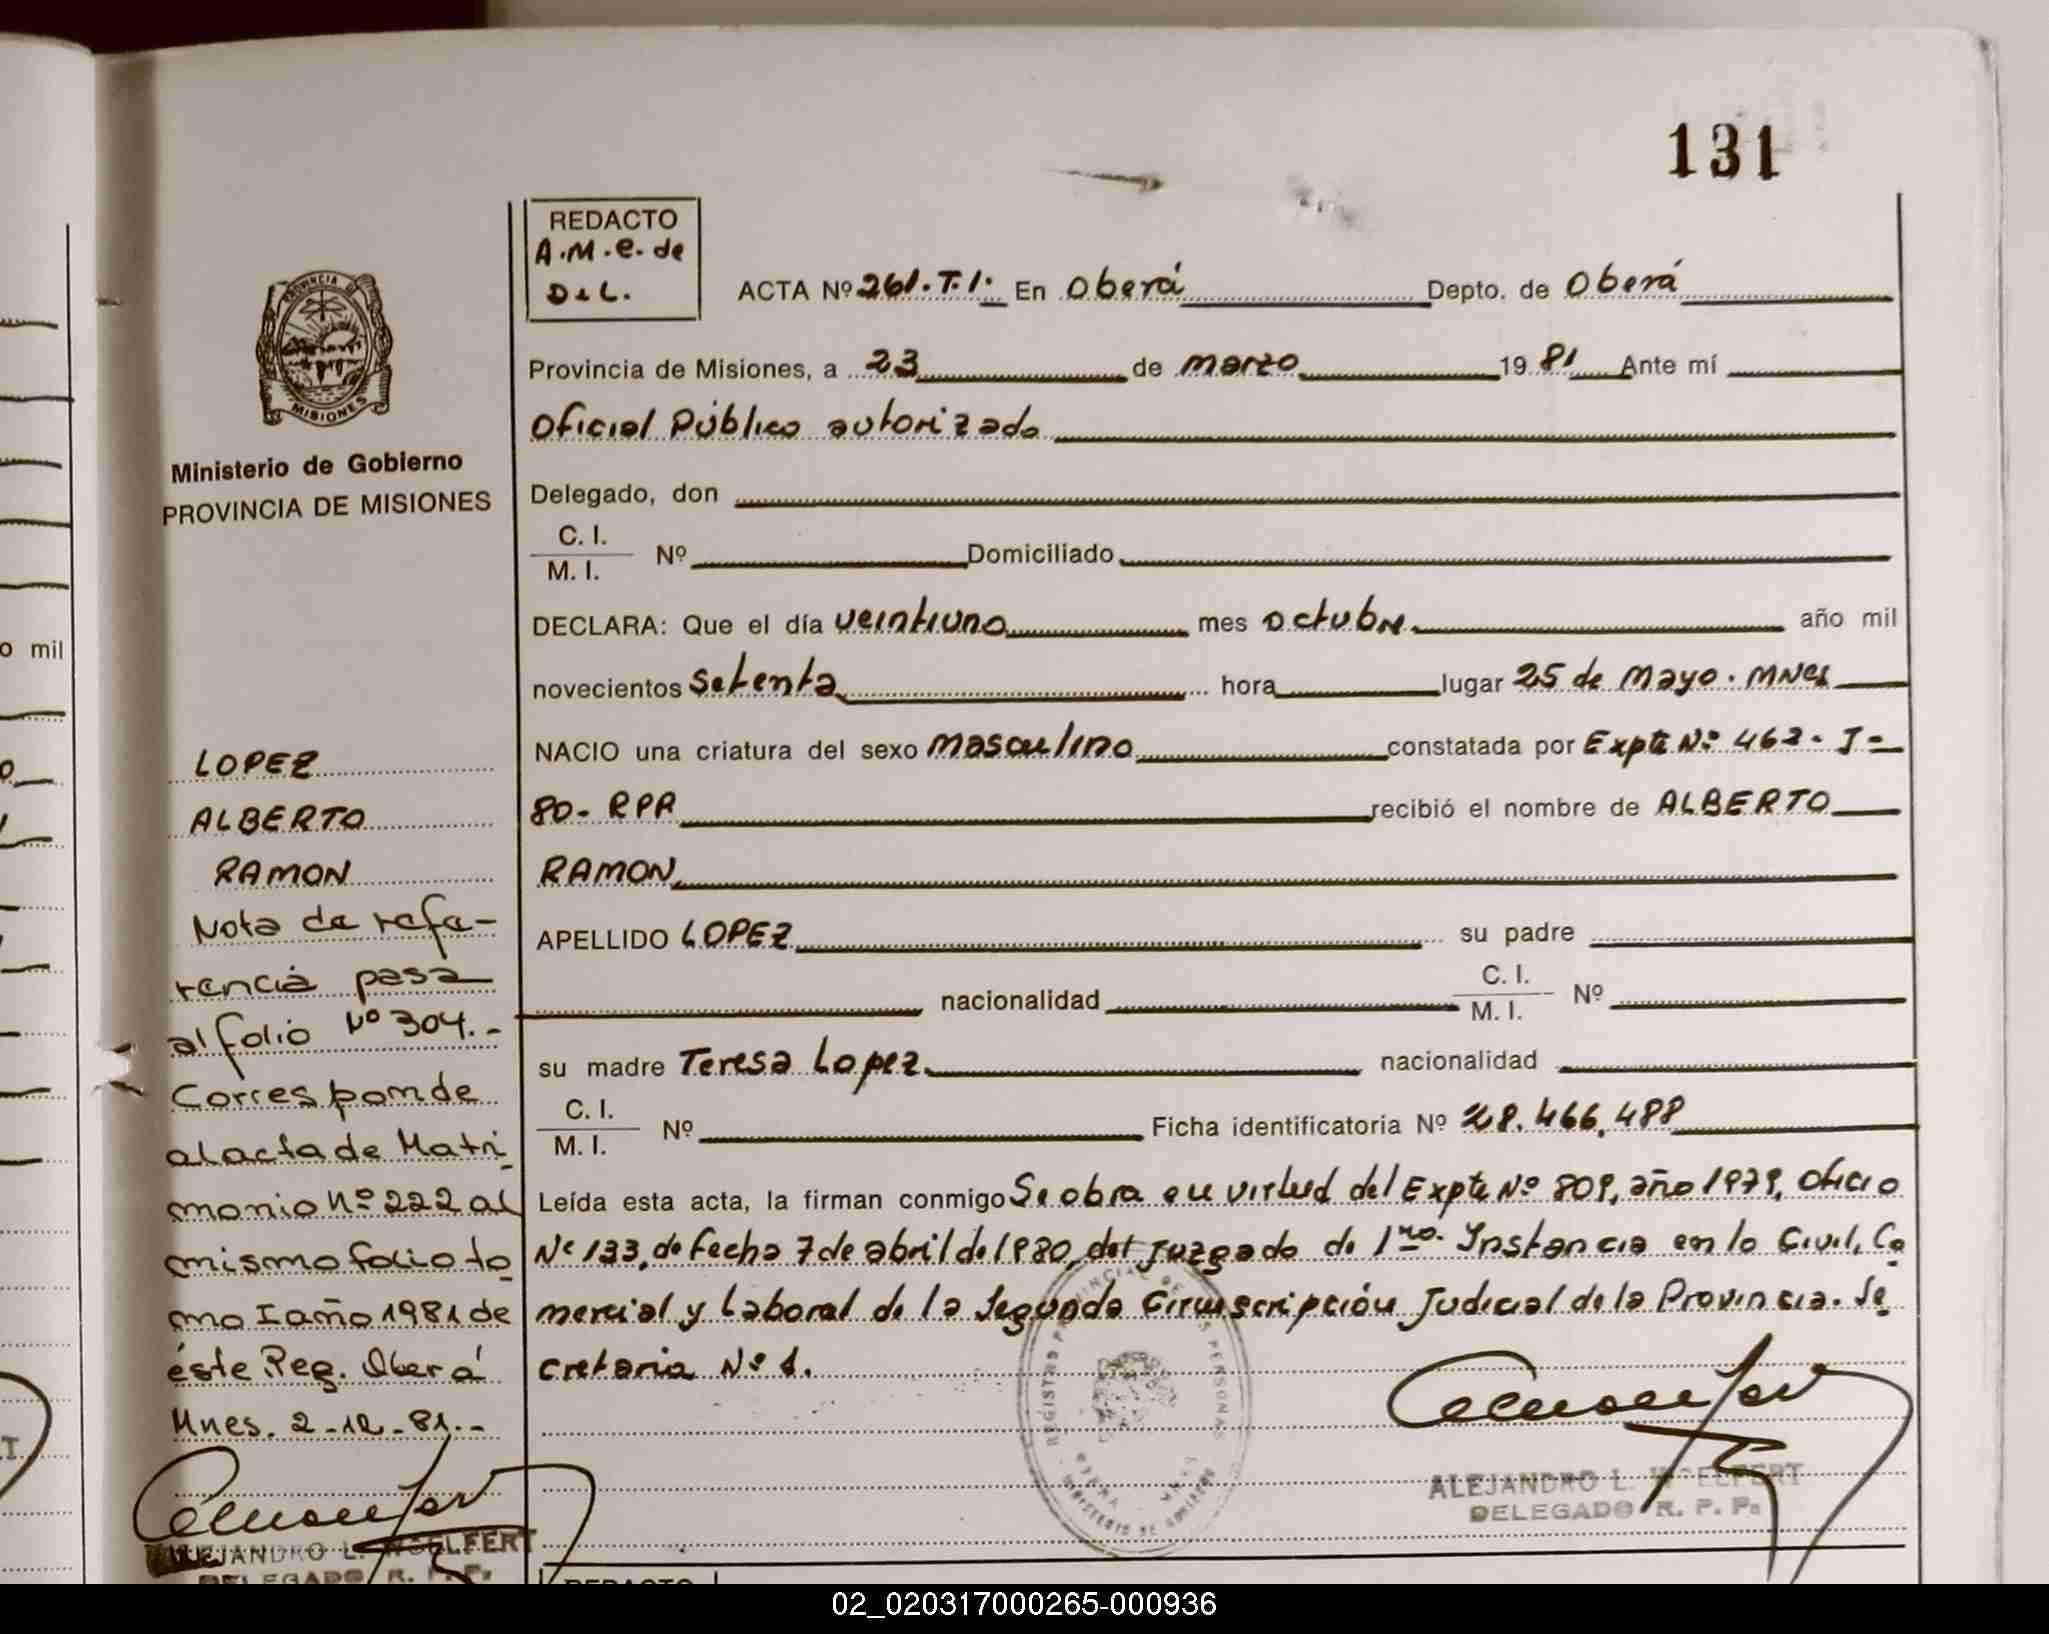 131
REDACTO
A.M.e. de
D&L.
ACTA Nº 261. T.I. En Oberá Depto. de Oberá
Provincia de Misiones, a 23 de marzo 19 81 Ante mí
Oficial Público autorizado
Delegado, don
C. I.
M. I. Nº Domiciliado
DECLARA: Que el día veintiuno mes octubre año mil
novecientos setenta hora lugar 25 de Mayo. MNes
NACIO una criatura del sexo masculino constatada por Expte Nº 462- J-
80- RPP recibió el nombre de ALBERTO
RAMON
APELLIDO LOPEZ su padre
nacionalidad C. I.
M. I. Nº
su madre Teresa Lopez nacionalidad
C. I.
M. I. Nº Ficha identificatoria Nº 28.466.488
Leída esta acta, la firman conmigo Se obra en virtud del Expte Nº 809, año 1979, Oficio
Nº 133, de fecha 7 de abril de 1980, del Juzgado de 1ra. Instancia en lo Civil, Co
mercial y Laboral de la Segunda Circunscripción Judicial de la Provincia. Se
cretaria Nº 1.
REGISTRO PROVINCIAL DE LAS PERSONAS
ALEJANDRO L. WOELFERT
DELEGADO R. P. P.
PROVINCIA DE
MISIONES
Ministerio de Gobierno
PROVINCIA DE MISIONES
LOPEZ
ALBERTO
RAMON
Nota de refe-
rencia pasa
al folio Nº 304.-
Corresponde
al acta de Matri
monio Nº 222 al
mismo folio to
mo I año 1981 de
éste Reg. Oberá
Mnes. 2-12-81.-
ALEJANDRO L. WOELFERT
DELEGADO R. P. P.
o mil
REDACTO
02_020317000265-000936